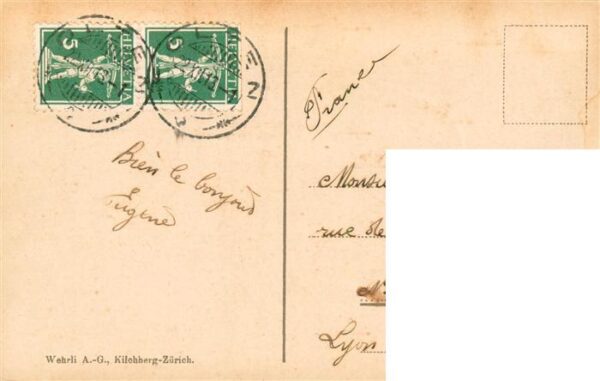 5 HELVETIA
5 HELVETIA
France
Bien le bonjour
Eugène
Monsieu
rue de
N
Lyon
Wehrli A.-G., Kilchberg-Zürich.